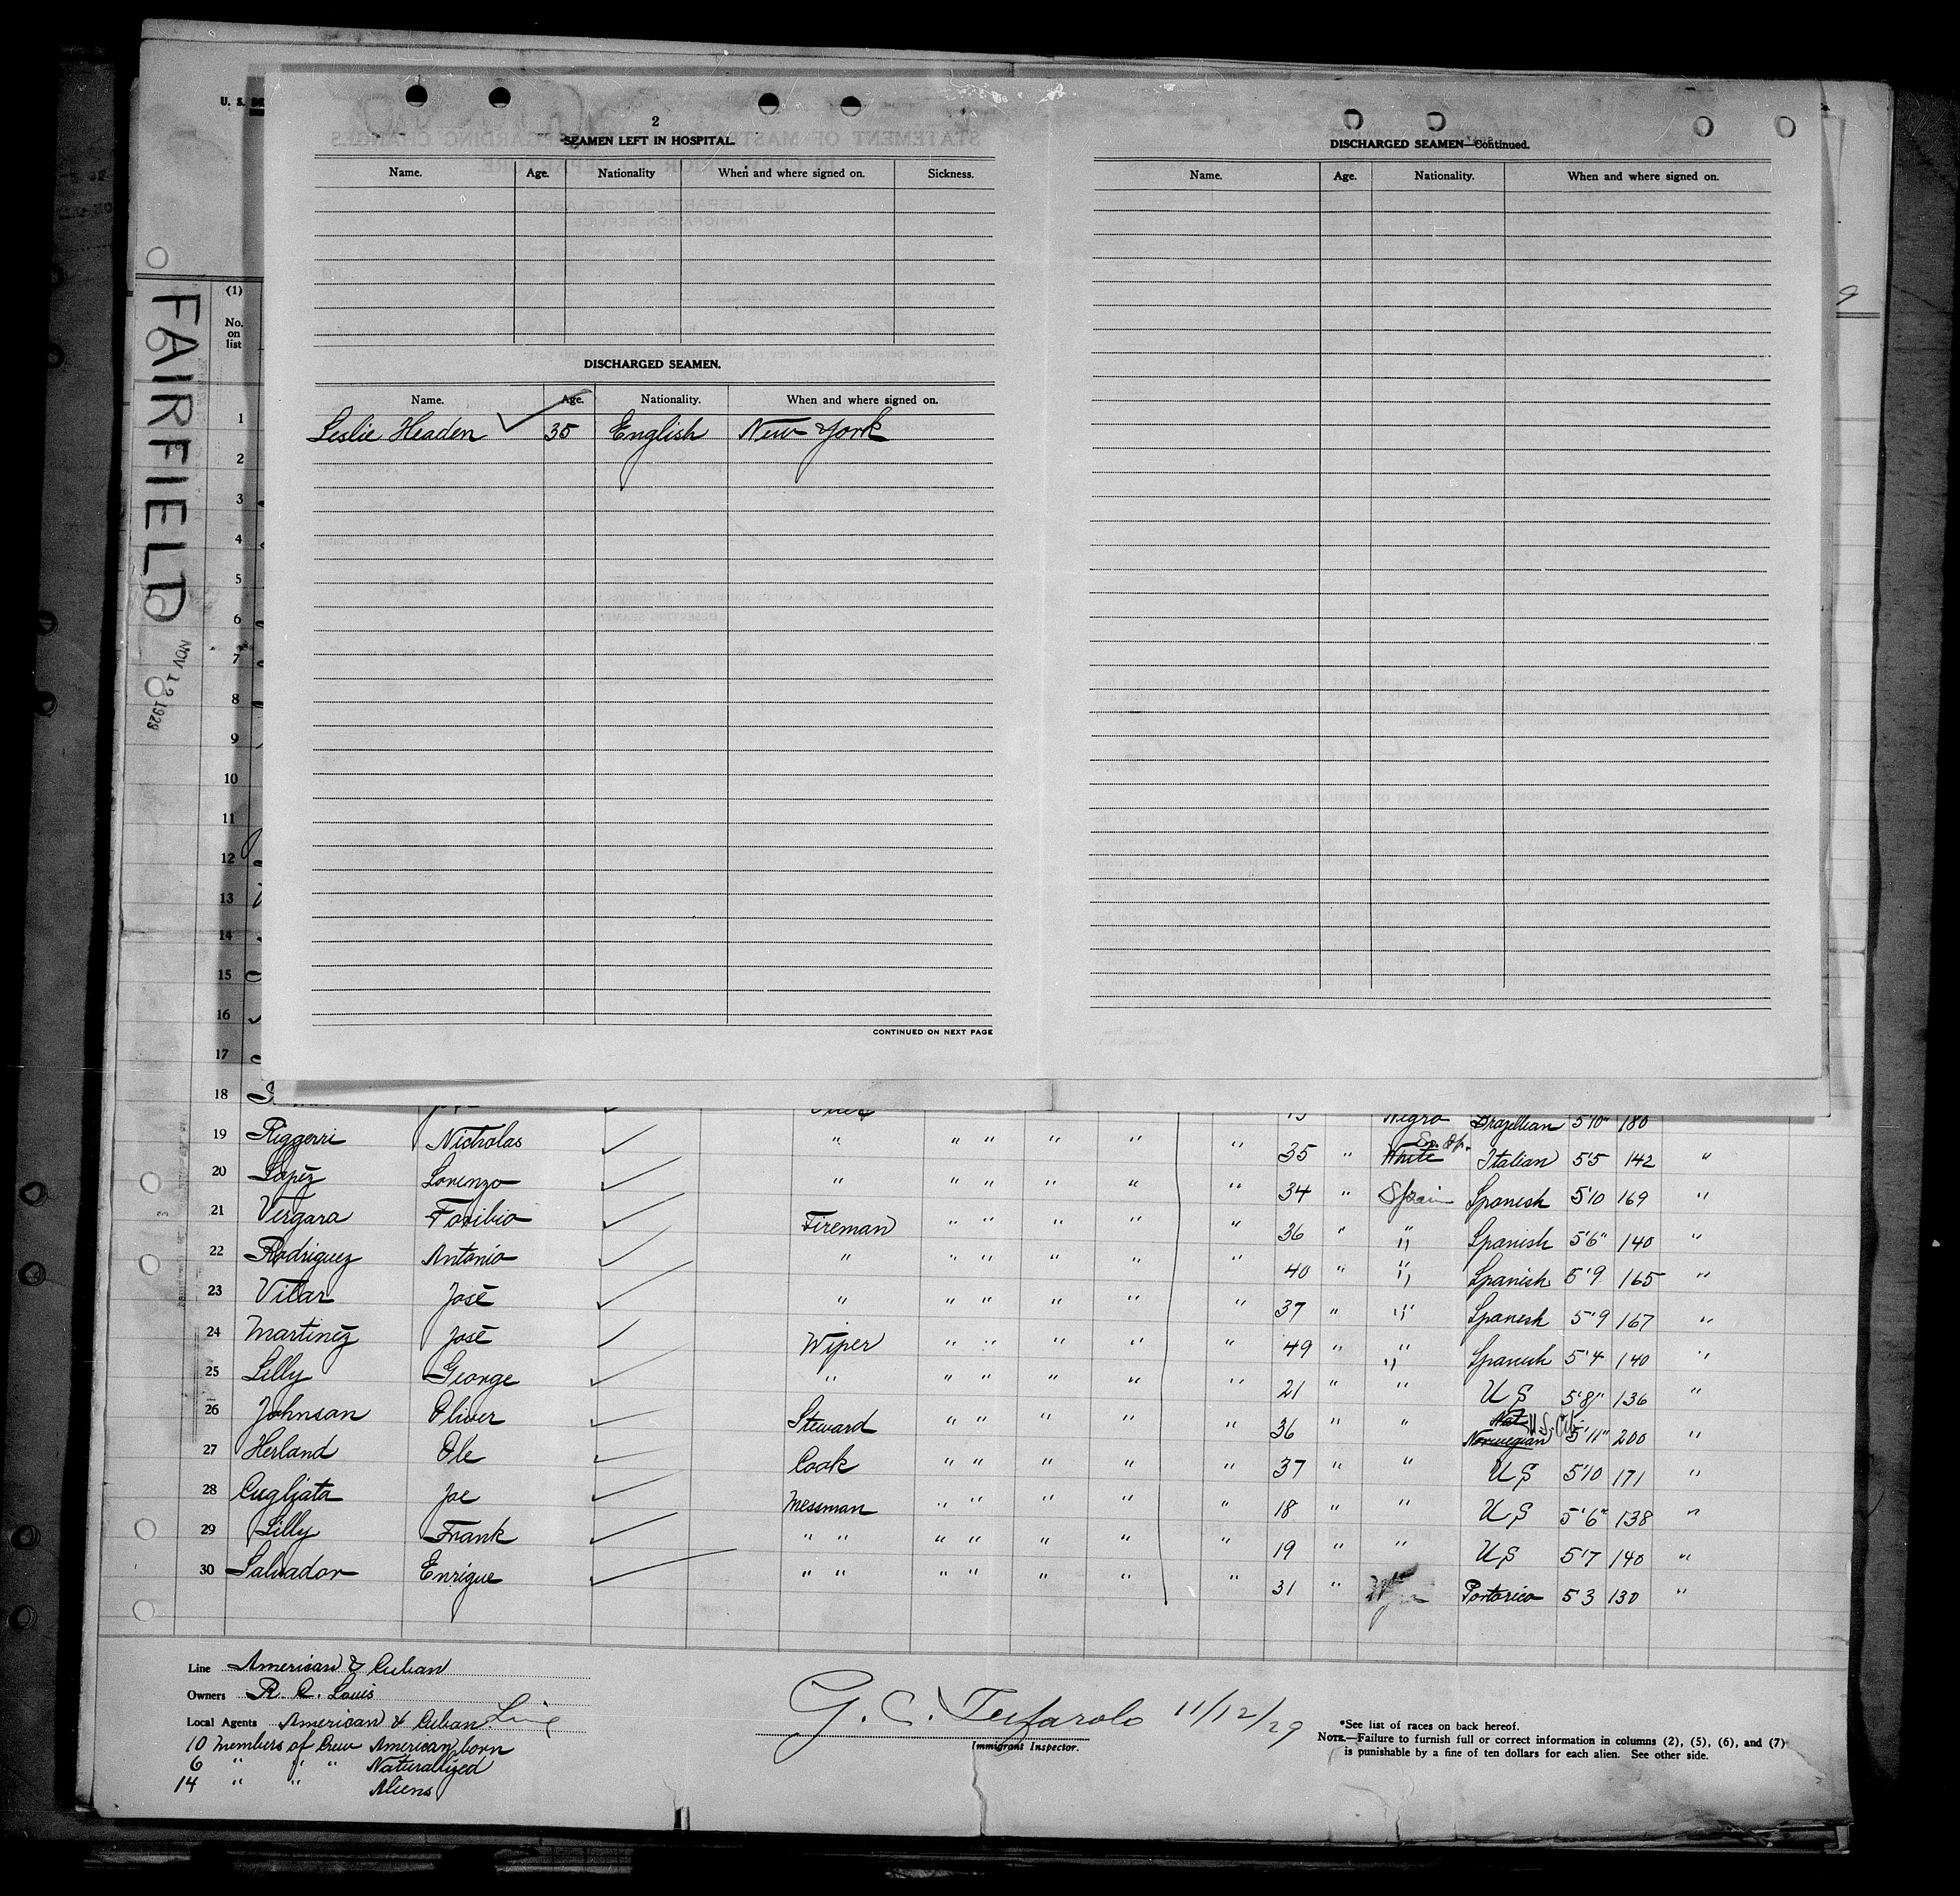 U. S.
2
SEAMEN LEFT IN HOSPITAL.
Name. Age. Nationality When and where signed on. Sickness.
DISCHARGED SEAMEN.
Name. Age. Nationality. When and where signed on.
Leslie Headen 35 English New York
CONTINUED ON NEXT PAGE
DISCHARGED SEAMEN—Continued.
Name. Age. Nationality. When and where signed on.
FAIRFIELD
NOV 12 1929
(1)
No. on list
1
2
3
4
5
6
7
8
9
10
11
12
13
14
15
16
17
18 Negro Brazilian 5'10" 180
19 Riggerri Nicholas " " " " " " 35 " White So. Italian 5'5 142 "
20 Lopez Lorenzo " " " " " " 34 " Spain Spanish 5'10 169 "
21 Vergara Foribio Fireman " " " " " 36 " " Spanish 5'6" 140 "
22 Rodriguez Antonio " " " " " " 40 " " Spanish 5'9 165 "
23 Vilar José " " " " " " 37 " " Spanish 5'9 167 "
24 Martinez José Wiper " " " " " 49 " " Spanish 5'4 140 "
25 Lilly George " " " " " " 21 " " U S 5'8" 136 "
26 Johnson Oliver Steward " " " " " 36 " " Nat Norwegian U.S. Cit. 5'11" 200 "
27 Herland Ole Cook " " " " " 37 " " U S 5'10 171 "
28 Cugliata Joe Messman " " " " " 18 " " U S 5'6" 138 "
29 Lilly Frank " " " " " " " 19 " " U S 5'7 140 "
30 Salvador Enrique " " " " " " " 31 " Portorico 5 3 130 "
Line American & Cuban
Owners R. A. Louis
Local Agents American & Cuban Line
10 members of Crew American born
6 " " " Naturallized
14 " " Aliens
G. C. Tufarolo 11/12/29
Immigrant Inspector.
*See list of races on back hereof.
NOTE.—Failure to furnish full or correct information in columns (2), (5), (6), and (7)
is punishable by a fine of ten dollars for each alien. See other side.